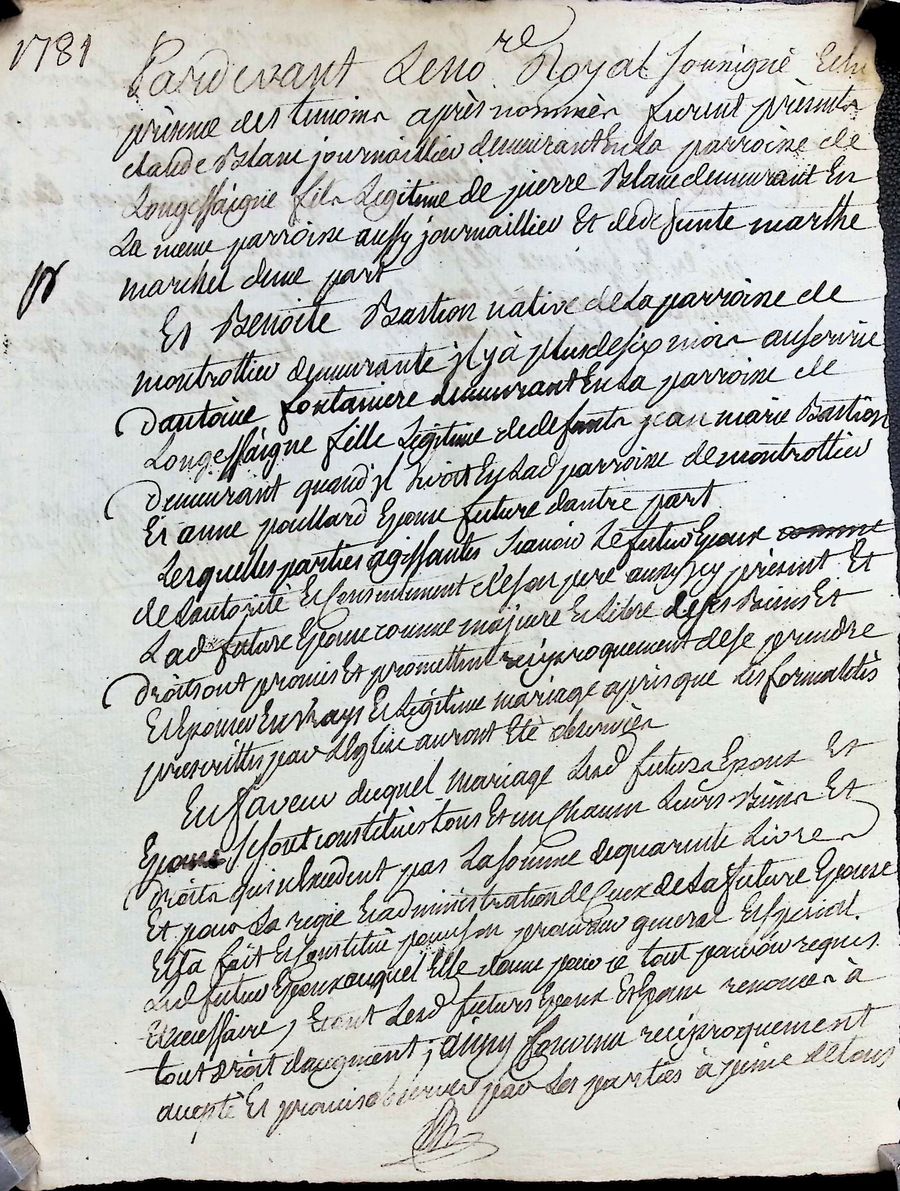 1781
Pardevant Le no.re Royal soussigné Et en
présence des temoins après nommés furent présents
claude Blanc journaillier demeurant En La parroisse de
Longessaigne fils Légitime de pierre Blanc demeurant En
La meme parroisse aussy journaillier Et de defunte marthe
marchet d'une part
Et Benoite Bastion native de La parroisse de
montrottier demeurante jl y à plus de six mois au service
D'antoine fontaniere demeurant En La parroisse de
Longessaigne fille Légitime de defunts jean marie Bastion
Demeurant quand jl vivoit En Lad parroisse de montrottier
Et anne poullard Epouse future d'autre part
Lesquelles parties agissantes scavoir Le futur Epoux comme
de Lautorité Et Consentement de son pere aussy jcy présent Et
Lad future Epouse comme majeure Et Libre de ses Biens Et
Droits ont promis Et promettent réciproquement de se prendre
Et Epouser En vray Et Légitime mariage après que Les formalités
prescrittes par L'Eglise auront Eté observées
En faveur duquel mariage Lesd futurs Epoux Et
Epouse se sont constitués tous Et un Chacun Leurs Biens Et
Droits qui n'Excedent pas La somme de quarante Livres
Et pour La regie Et administration de Ceux de La future Epouse
Elle a fait Et Constitué pour son procureur general Et special
Led futur Epoux auquel Elle donne pour ce tout pouvoir requis
Et necessaire, Et ont Lesd futurs Epoux Et Epouse renoncer à
tout droit d'augment; ainsy Convenu reciproquement
accepté Et promis observer par Les parties à peine de tous